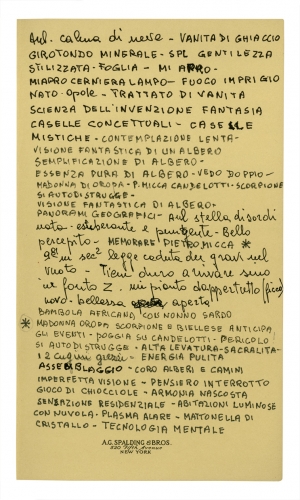 calma di neve - VANITA DI GHIACCIO
GIROTONDO MINERALE - GENTILEZZA
STILIZZATA - FOGLIA - MI APRO -
MIAPRO CERNIERA LAMPO - FUOCO IMPRIGIO
NATO - Opale - TRATTATO DI VANITA
SCIENZA DELL'INVENZIONE FANTASIA
CASELLE CONCETTUALI - CASELLE
MISTICHE - CONTEMPLAZIONE LENTA -
VISIONE FANTASTICA DI UN ALBERO
SEMPLIFICAZIONE DI ALBERO -
ESSENZA PURA DI ALBERO - VEDO DOPPIO -
MADONNA DI OROPA - P. MICCA CANDELOTTI - SCORPIONE
SI AUTODISTRUGGE -
VISIONE FANTASTICA DI ALBERO -
PANORAMI GEOGRAFICI - stella disordi
nata - esuberante e pungente - Bello
percepito - MEMORARE PIETRO MICCA *
legge caduta dei gravi nel
vuoto - Tieni duro arrivare sino
in fondo Z. mi pianto dappertutto
nord - bellezza aperta
BAMBOLA AFRICANA CON NONNO SARDO
* MADONNA OROPA SCORPIONE E BIELLESE ANTICIPA
GLI EVENTI - POGGIA SU CANDELOTTI - PERICOLO
SI AUTODISTRUGGE - ALTA LEVATURA - SACRALITA -
12 cugini - ENERGIA PULITA
ASSEMBLAGGIO - CORO ALBERI E CAMINI
IMPERFETTA VISIONE - PENSIERO INTERROTTO
GIOCO DI CHIOCCIOLE - ARMONIA NASCOSTA
SENSAZIONE RESIDENZIALE - ABITAZIONI LUMINOSE
CON NUVOLA - PLASMA ALARE - MATTONELLA DI
CRISTALLO - TECNOLOGIA MENTALE
A.G. SPALDING & BROS.
520 Fifth Avenue
NEW YORK